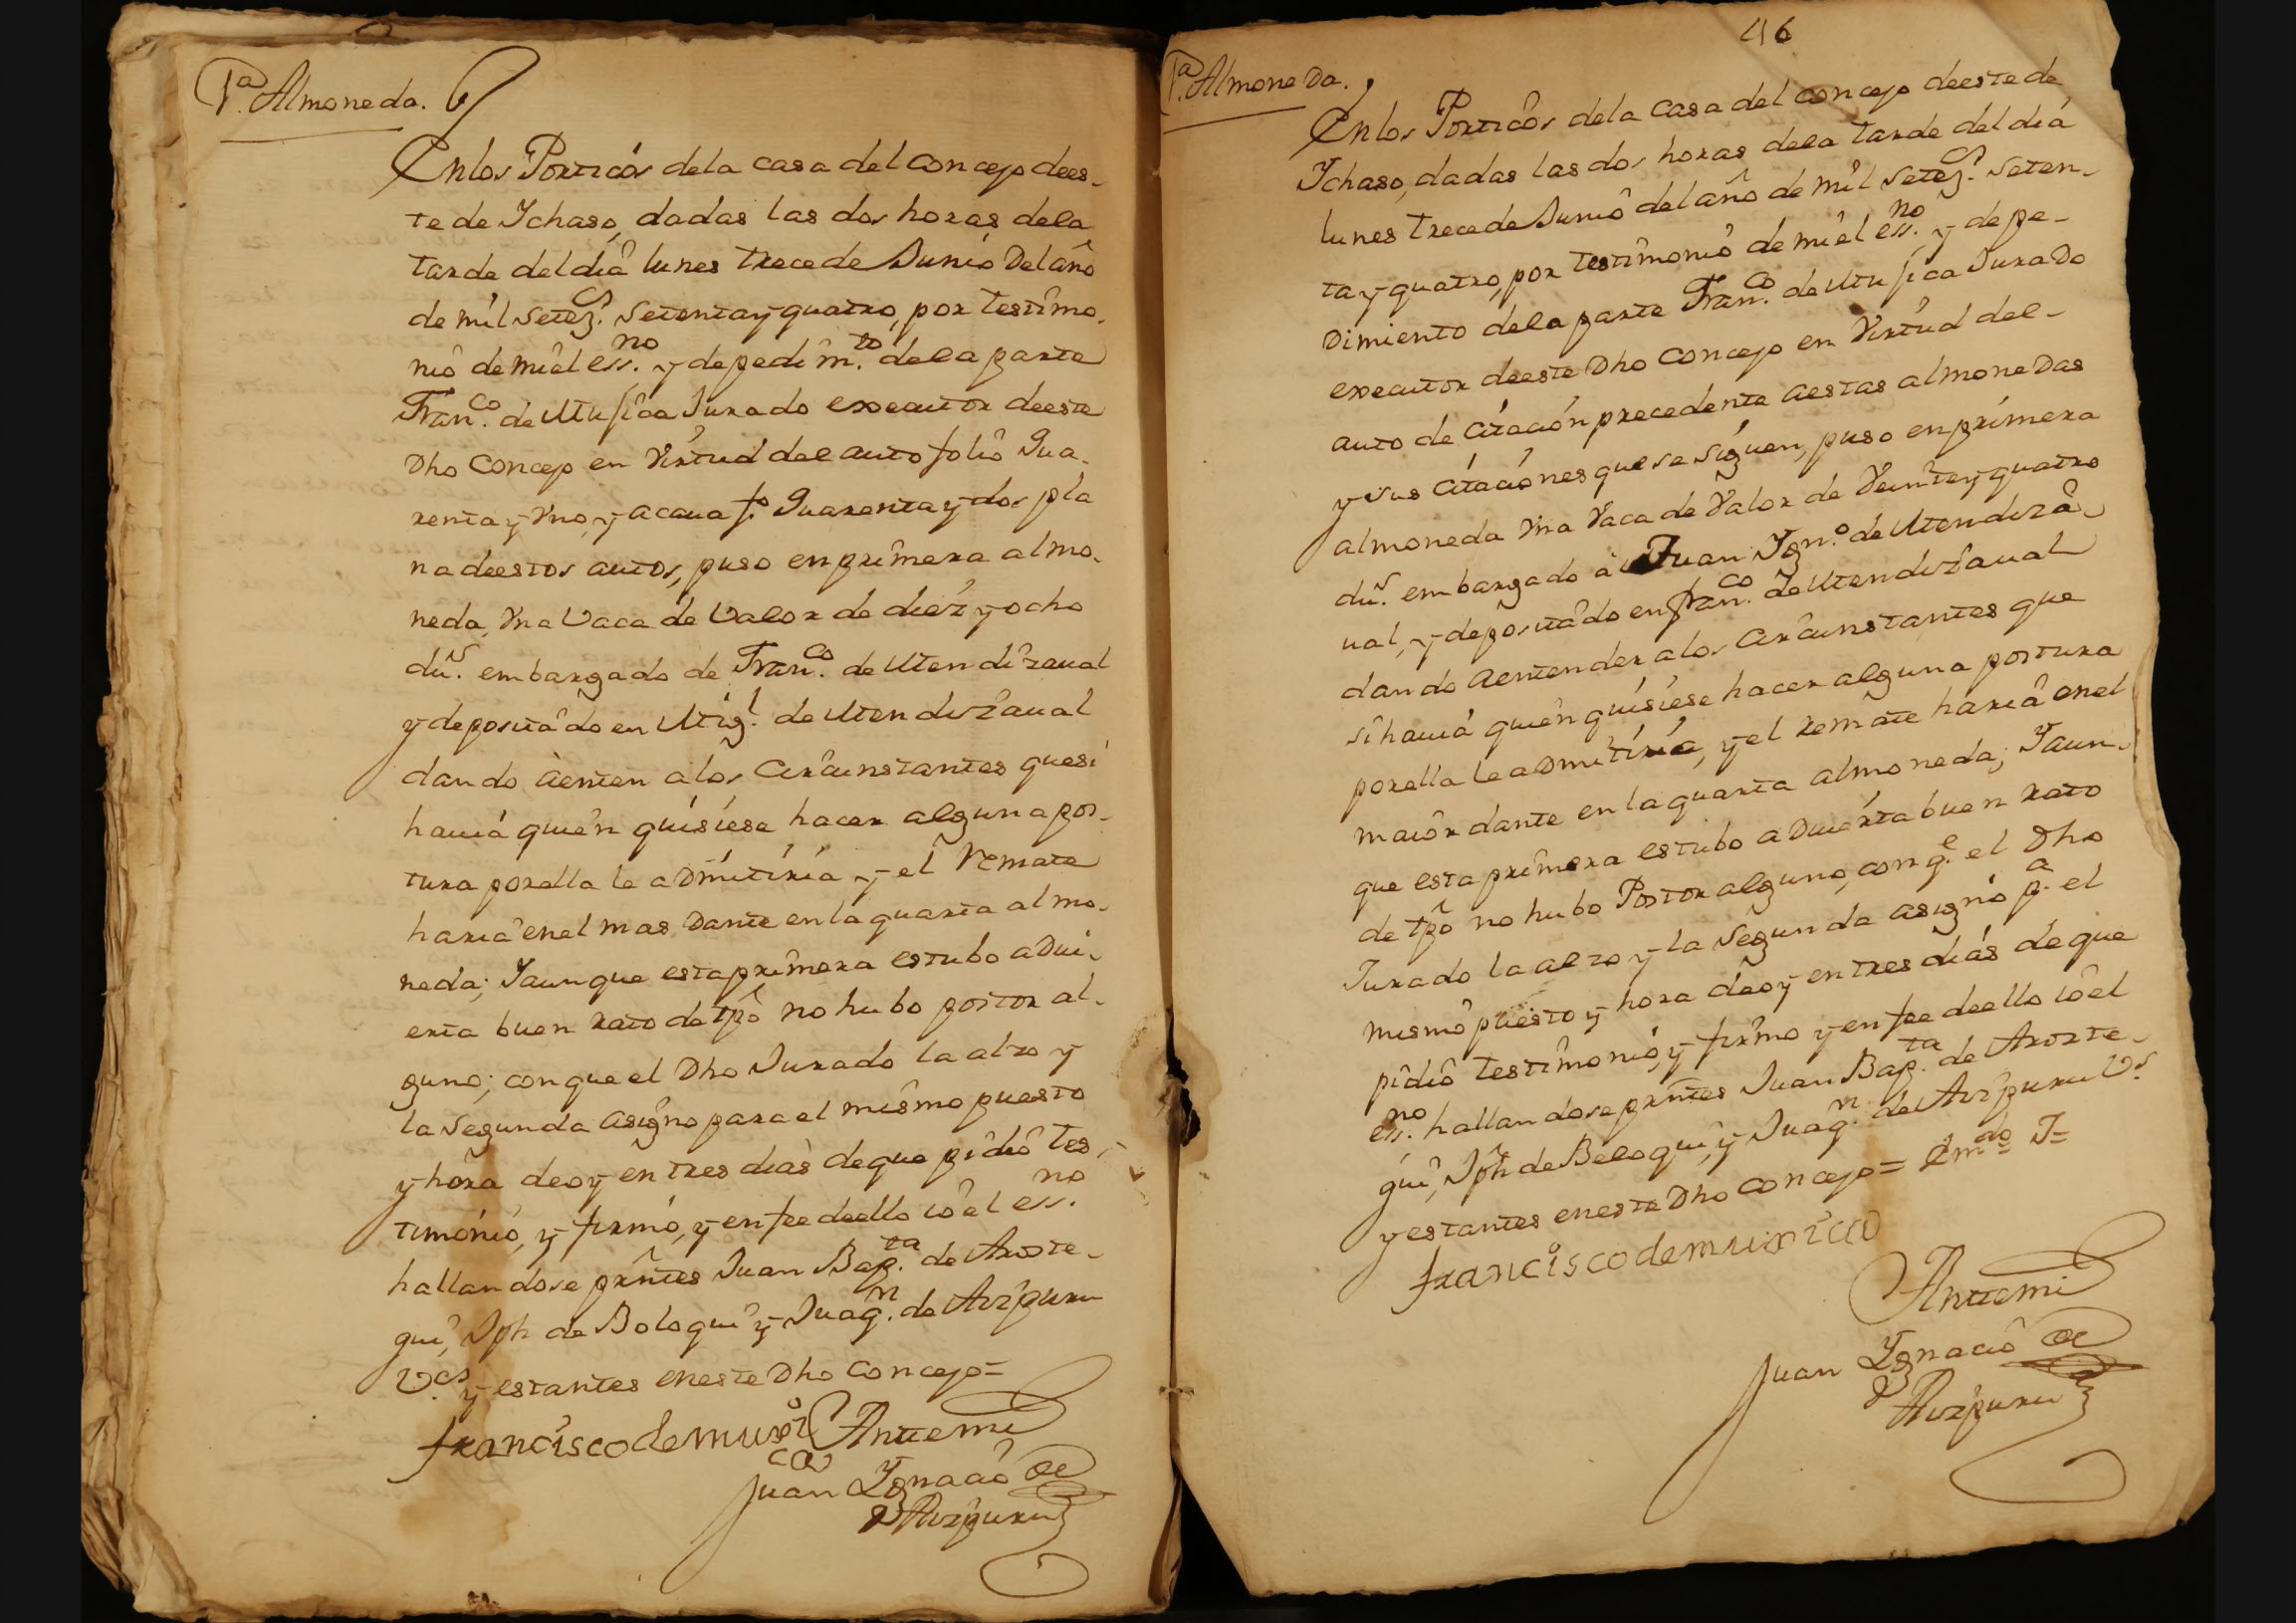 1.ª Almoneda.
En los Porticos dela casa del concejo dees-
te de Ychaso, dadas las dos horas dela
tarde del dia lunes trece de Junio Del año
de mil setez.s setenta y quatro, por testimo-
nio de mi el ess.no y de pedim.to dela parte
Fran.co de Muxica Jurado executor deeste
Dho Concejo en Virtud del auto folio Qua-
renta y Vno, y acaua f.o Quarenta y dos pla
na deestos autos, puso en primera almo-
neda, Vna Vaca de Valor de diez y ocho
du.s embargado de Fran.co de Mendizaual
y depositado en Mig.l de Mendizaual
dando aenten alos Circunstantes quesi
hauia quien quisiese hacer alguna pos-
tura porella le aDmitiria y el Remate
haria enel mas Dante en la quarta almo-
neda; Yaunque esta primera estubo aDui-
erta buen rato de tpo no hubo postor al-
guno; con que el Dho Jurado la alzo y
la segunda asigno para el mismo puesto
y hora deoy en tres dias de que pidio tes-
timonio, y firmo, y en fee deello io el ess.no
hallandose prntes Juan Bap.ta de Aroste-
gui, Jph de Beloqui y Juaq.n de Aizpuru
V.cs y estantes eneste Dho concejo=
francisco de muxi
ca
Antemi
Juan Ygnacio de
Aizpuru
46
1.ª Almoneda.
En los Porticos dela casa del concejo deeste de
Ychaso, dadas las dos horas dela tarde del dia
lunes trece de Junio del año de mil setez.s seten-
ta y quatro, por testimonio de mi el ess.no y de pe-
Dimiento dela parte Fran.co de Muxica JuraDo
executor deeste Dho Concejo en Virtud del-
auto de citacion precedente aestas almoneDas
y sus citaciones que se siguen, puso en primera
almoneda Vna Vaca de Valor de Veinte y quatro
du.s embargado a Juan Ygn.o de Mendiza-
ual, y depositado en fran.co de Mendizaual
dando aentender alos Circunstantes que
si hauia quien quisiese hacer alguna postura
porella le aDmitiria, y el remate haria enel
maior dante en la quarta almoneda; Yaun-
que esta primera estubo aDuierta buen rato
de tpo no hubo Postor alguno, con q.e el Dho
Jurado la alzo y la segunda asigno p.a el
mismo puesto y hora deoy en tres dias de que
pidio testimonio, y firmo y en fee deello io el
ess.no hallandose prntes Juan Bap.ta de Aroste-
gui, Jph de Beloqui, y Juaq.n de Aizpuru V.s
y estantes eneste Dho concejo= Em.do J=
francisco de muxica
Antemi
Juan Ygnacio de
Aizpuru